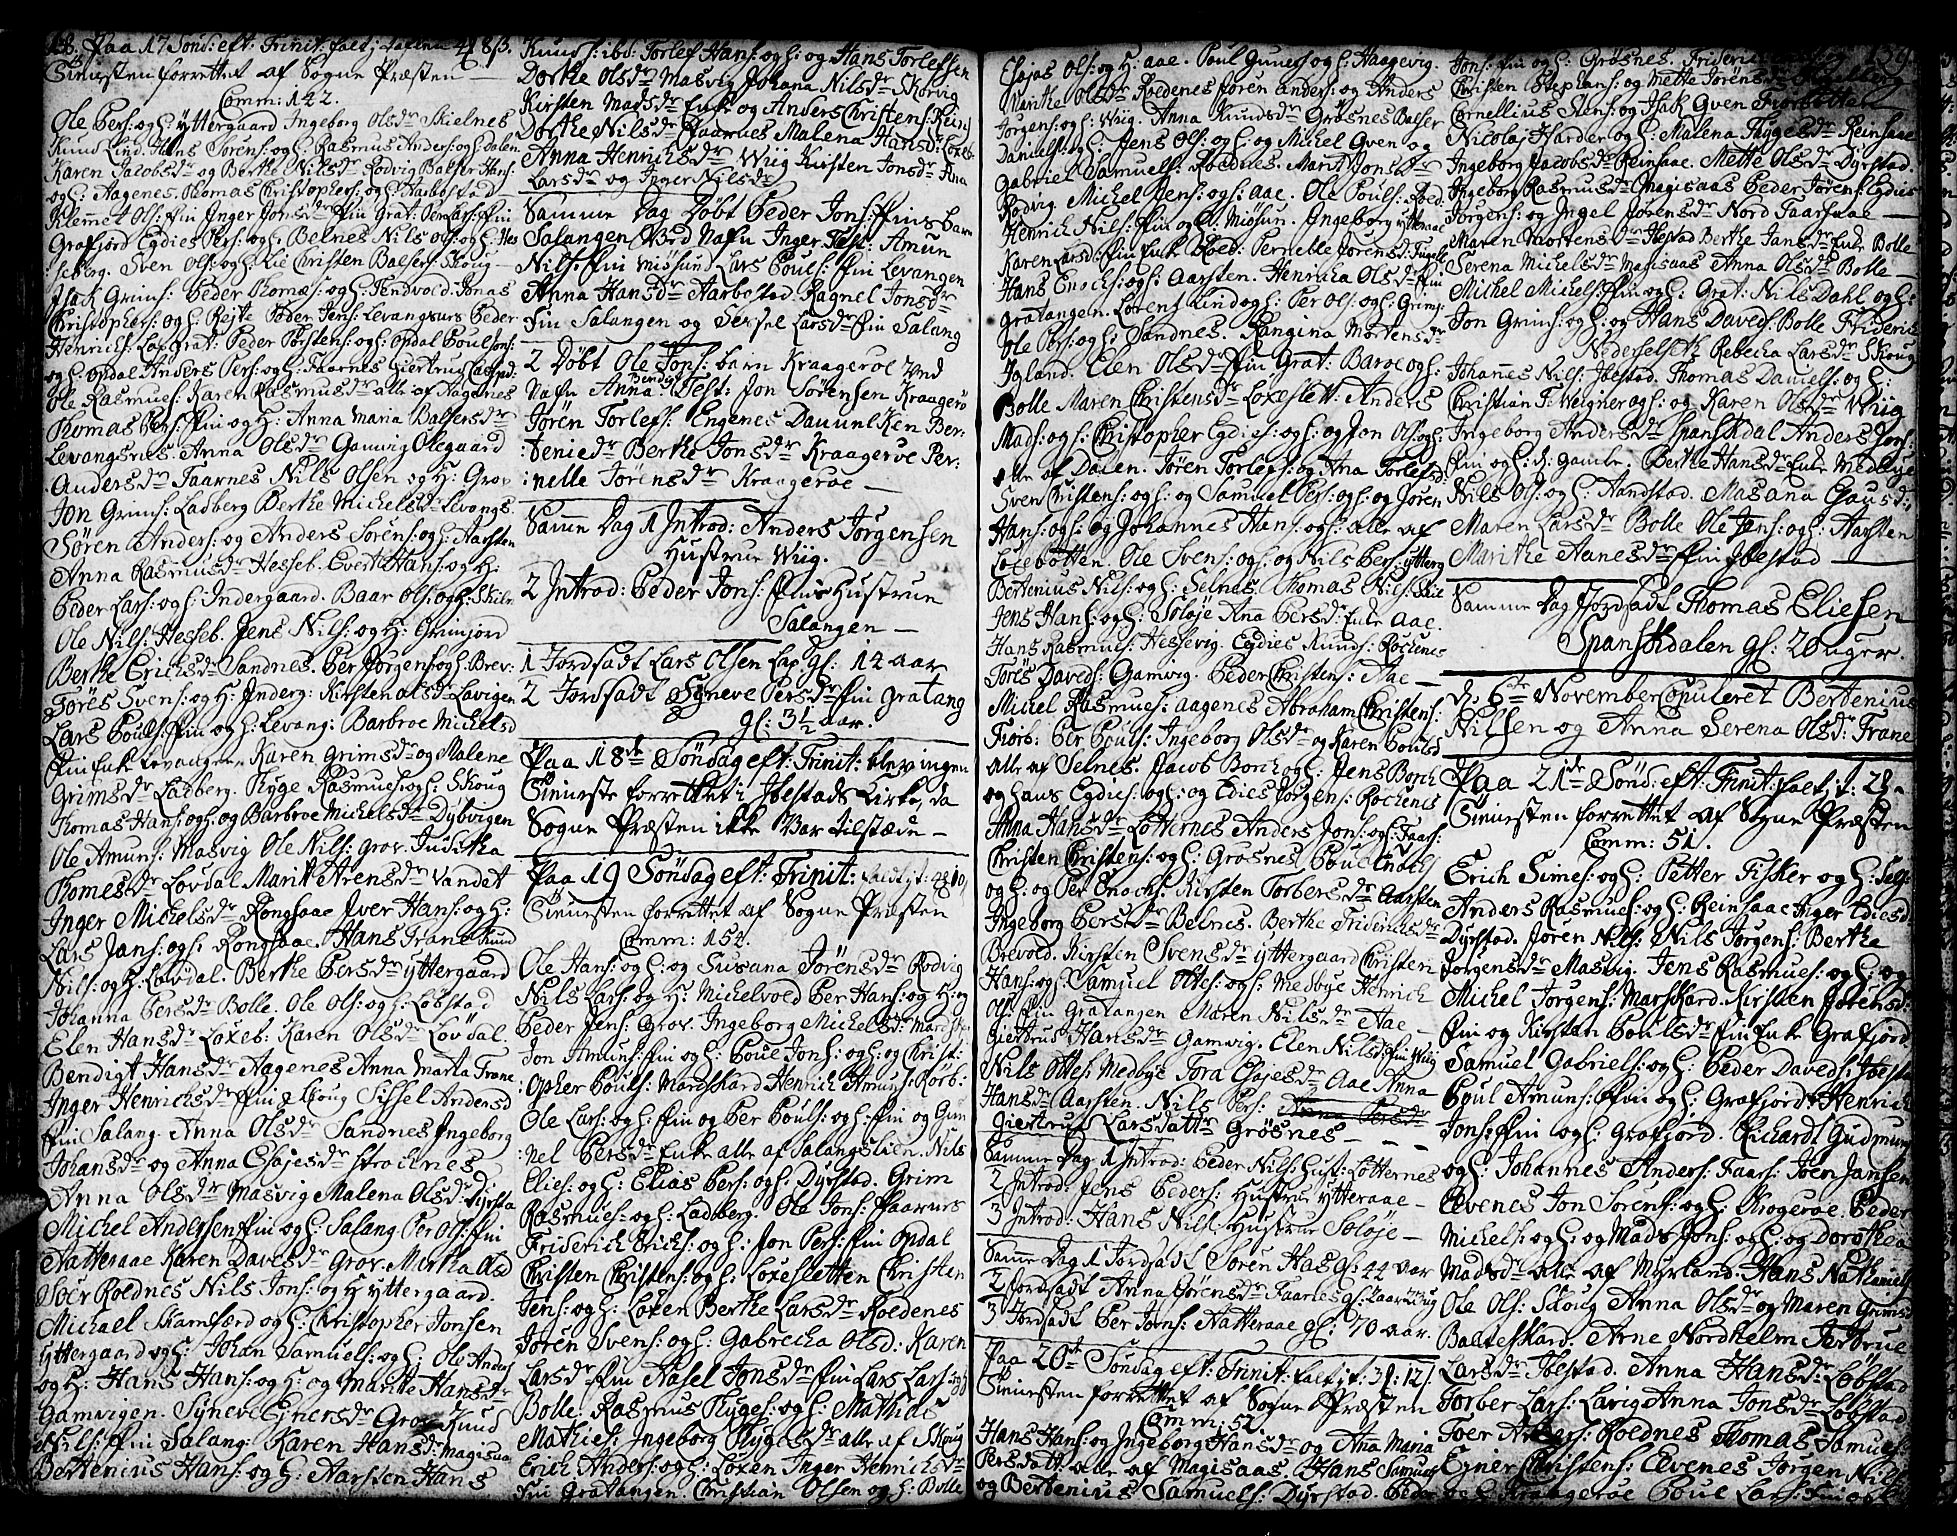 18. Paa 17 Sönd: eft: Trinit: falt; taflen 4 ℔ 8 ß.
Tienesten forrettet af Sogne Præsten —
Comm: 142.
Ole Pers: og H: yttergaard Ingeborg Olsdr Skielnes
Knud Lind. Hans Sörens: og H: Rasmus Anders: og H: Dalen
Karen Jacobsdr og Berthe Nilsdr Rodvig Balser Hans:
og H: Aagenes. Thomas Christophers: og H: Aarbostad
Klemet Ols: fin Inger Jonsdr fin Grat: Per Lars: fin
Grafjord Egdies Pers: og H: Belnes Nils Ols: og H: Hes
seskog. Sven Ols: og H: Lie Christen Balsers: Skoug —
Isak Grims: Peder Thomes: og H: Tendvold. Jonas
Christophers: og H: Rejte Peder Jens: Levangsnes Peder
Henrichs: Lap Grat: Peder Torstens: og H: opdal Poul Jons:
og H: opdal Anders Pers: og H: Faarnes Giertrud
Ole Rasmus: Karen Rasmusdr alle af Aagenes
Thomas Pers: fin og H: Anna Maria Balsersdr
Levangsnes. Anna Olsdr Gamvig Olegaard
Andersdr Faarnes Nils Olsen og H: Grov
Jon Grims: Ladberg Berthe Michelsdr Levangs:
Sören Anders: og Anders Sörens: og H: Aarsten
Anna Rasmusdr Hesseb. Evert Hans: og H:
Peder Lars: og H: Indergaard. Baar Ols: og H: Skiln
Ole Nils: Hesseb. Jens Nils: og H: Grimjord
Berthe Erichsdr Sandnes. Per Jörgens: og H: Brev:
Törres Svens: og H: Inderg: Kirsten Olsdr Lavigen
Lars Pouls: fin og H: Levang: Barbroe Michelsd
fin Enke Levangen Karen Grimsdr og Malene
Grimsdr Ladberg. Tyge Rasmus: og H: Skoug
Thomas Hans: og H: og Barbroe Michelsdr Dybvigen
Ole Amuns: Masvig Ole Nils: Grov. Judithe
Thomesdr Lövdal Marit Arensdr Vandet
Inger Michelsdr Rongsaae Iver Hans: og H:
Lars Jans: og H: Rongsaae. Hans Trane Knud
Nils: og H: Lövdal. Berthe Persdr yttergaard
Johanna Persdr Bolle. Ole Ols: og H: Löbstad
Elen Hansdr Loxeb: Karen Olsdr Lövdal.
Bendigt Hansdr Aagenes Anna Marta Trane
Inger Henrichsdr fin Skoug Sissel Andersd
fin Salang. Anna Olsdr Sandnes Ingeborg
Johansdr og Anna Esajesdr Strocknes
Anna Olsdr Masvig Malena Olsdr Dyrsta
Michel Andersen fin og H: Salang Per Ols: fin
Natteraae Karen Davesdr Grov. Mirtha Olsd
Soer Roednes Nils Jons: og H yttergaard.
Michael Skamfærd og H: Christopher Jonsen
yttergaard og H: Johan Samuels: og H: Ole Anders
og H: Hans Hans: og H: og Marithe Hansdr
Gamvigen. Synev Einersdr Grov Knud
Nils: fin Salang: Karen Hansd: Magisaa
Bertenius Hans: og H: Aarsten Hans
Knuds: ibd: Torlef Hans: og H: og Hans Torlefsen
Dorthe Olsdr Masvig Johana Nilsdr Skorvig
Kirsten Madsdr Enke og Anders Christens: Rein
Dorthe Nilsdr Faarnes Malena Hansd: Loxeb
Anna Henrichsdr Wiig Kirsten Jonsdr Ana
Larsdr og Inger Nilsdr
Samme Dag Döbt Peder Jons: fins barn
Salangen Ved Nafn Inger Test: Amun
Nils: fin Miösund Lars Pouls: fin Levangen
Anna Hansdr Aarbostad. Ragnel Jonsdr
fin Salangen og Sersel Larsdr fin Salang
2 Döbt Ole Jons: barn Kraageröe Ved
Nafn Anna Bendigt Test: Jon Sörensen Kraageröe
Jören Torlefs: Engenes Danuel Ken Ber:
tenie dr Berthe Jonsdr Kraageröe Per:
:nelle Jörensdr Kraageröe —
Samme Dag 1 Introd: Anders Jörgensen
Hustrue Wiig.
2 Introd: Peder Jons: fins Hustrue
Salangen —
1 Jordfadt Lars Olsen Lap gl: 14 aar
2 Jordfadt Synneve Persdr fin Gratang
gl: 3½ aar
Paa 18de Söndag eft: Trinit: blev ingen
Tieneste forrettet i Ibestads Kirke, da
Sogne Præsten ikke Var tilstæde —
Paa 19 Söndag eft: Trinit:
Tienesten forrettet af Sogne Præsten
Comm: 154.
Ole Hans: og H: og Susana Jörensdr Rodvig
Nils Lars: og H: Michelvold Per Hans: og H: og
Peder Jens: Grov. Ingeborg Michelsd: Marskar
Jon Amuns: fin og H: Poul Jons: og H: og Christ:
:opher Pouls: Marskkard Henrich Amuns: Rörb:
Ole Lars: og H: fin og Per Pouls: og H: fin og Gun
:nel Persdr Enke alle af Salangslien. Nils
Elies: og H: Elias Pers: og H: Dyrstad. Grim
Rasmus: og H: Ladberg. Ole Jons: Faarnes
Friderich Erichs: og H: Jon Pers: fin Opdal
Christen Christens: og H: Loxesletten Christen
Jens: og H: Loxen Berthe Larsdr Roedenes
Jören Svens: og H: Gabrecha Olsd: Karen
Larsdr fin Aasel Jonsdr fin Lars Lars: og H:
Bolle. Rasmus Thyges: og H: Mathias
Mathies: Ingeborg Thygesdr alle af Skoug
Erich Anders: og H: Loxen Inger Henrichsdr
fin Gratangen. Christian Olsen og H: Bolle
Esajas Ols: og H: aae. Poul Guners: og H: Haagevig.
Marithe Olsdr Roedenes Jören Anders: og Anders
Jörgens: og H: Wiig. Anna Knudsdr Grösnes Balser
Daniels: og H: Jens Ols: og H: og Michel Gven og
Gabriel Samuels: Roednes. Marit Jonsdr
Rodvig Michel Jens: og H: aae. Ole Pouls: Roed
Henrich Nils: fin og H: Miösun. Ingeborg ytteraae
Karen Larsd: fin Enke Roed: Pernelle Jörensd: Fugelb
Hans Enochs: og H: Aarsten. Henricha Olsdr fin
Gratangen. Lorens Lind og H: Per Ols: og H: Grims
Ole Pers: og H: Sandnes. Kangina Mortensdr
Igland. Elen Olsdr fin Grat: Baroe og H:
Bolle Maren Christensdr Loxeslett: Anders
Mads: og H: Christopher Egdies: og H: og Jon Ols: og H:
alle af Dalen. Jören Torlefs: og Ana Torlefsd:
Sven Christens: og H: og Samuel Pers: og H: og Jören
Hans: og H: og Johannes Hans: og H: alle af
Loxebotten. Ole Svens: og H: og Nils Pers: ytterg
Bertenius Nils: og H: Selnes. Thomas Nils: Skie
Jens Hans: og H: Solöje Ana Persd: Enke aae.
Hans Rasmus: Hessevig. Egdies Knuds: Rochenes
Törres Daveds: Gamvig. Peder Christens: Aae —
Michel Rasmus: Aagenes Abraham Christens:
Fiorb: Per Pouls: Ingeborg Olsdr og Karen Poulsd
alle af Selnes. Jacob Borch og H: Jens Borch
og Hans Egdies: og H: og Edies Jörgens: Rochenes
Anna Hansdr Lötternes Anders Jons: og H: Faars:
Christen Christens: og H: Grosnes Poul Enochs
og H: og Per Enochs: Kirsten Torbersdr Aarsten
Ingeborg Persdr Belnes. Berthe Friderichsdr
Brevold. Kirsten Svensdr yttergaard Christen
Hans: og H: Samuel Ottes: og H: Medbye Henrich
Ols: fin Gratangen Maren Nilsdr Aae —
Giertrud Hansdr Gamvig. Elen Nilsd: fin Wiig
Nils Ottes: Medbye Tora Esajesdr Aae Anna
Hansdr Aarsten. Nils Pers: Anna Persdr
Giertrud Larsdattr Grösnes — — —
Samme Dag 1 Introd: Peder Nils: Hust: Lötternes
2 Introd: Jens Peders: Hustrue ytteraae —
3 Introd: Hans Nils: Hustrue Solöje —
Samme Dag 1 Jordfadt Sören Hans: gl: 44 aar
2 Jordfadt Anna Jörensdr Faarnes gl:
3 Jordfadt Per Jons: Natteraae gl: 70 aar.
Paa 20de Söndag eft: Trinit: falt i t: 3 ℔: 12 ß
Tienesten forrettet af Sogne Præsten
Comm: 52
Hans Hans: og Ingeborg Hansdr og Ana Maria
Persdatt alle af Magisaas. Hans Samuels
og Bertenius Samuels: Dyrstad. Peder
Jons: fin og H: Grösnes. Friderich 139.
Christen Stephans: og Mette Jörensdr
Cornellius Stens: og Isak Gven Fiorbotten
Nicolaj Harder og H: Malena Tyggesdr Reinsaae
Ingeborg Jacobsdr Reinsaae. Mette Olsdr Dyrstad.
Ingeborg Rasmusdr Magisaas Peder Jörens: Egdies
Jörgens: og Ingel Jörensdr Nord Faarsaae —
Maren Mortensdr Ibestad Berthe Jansdr Enke Bolle
Serena Michelsdr Magisaas Anna Olsdr Bolle —
Michel Michels: fin og H: Grat: Nils Dahl og H:
Jon Grims: og H: og Hans Daveds: Bolle Friderich
Nederfelseth Rebecha Larsdr Skoug
Johannes Nils: Ibestad. Thomas Daniels: og H:
Christian F: Weigner og H: og Karen Olsdr Wiig
Ingeborg Andersdr Spanskdal Anders Jens:
fin og H: d: gamle. Berthe Hansdr Enke Medbye
Nils Ols: og H: Handstad. Masana Clausd:
Maren Larsdr Bolle Ole Jens: og H: Aarsten
Marithe Aanesdr fin Ibestad —
Samme Dag Jordfadt Thomas Eliesen
Spanskdalen gl: 20 uger.
D: 6te November Copuleret Bertenius
Nilssen og Anna Serena Olsd: Trane
Paa 21de Sönd: eft: Trinit: falt i t: 28 ß
Tienesten forrettet af Sogne Præsten
Comm: 51.
Erich Simes: og H: Petter Fisker og H: Selje
Anders Rasmus: og H: Reinsaae Inger Ediesd
Dyrstad. Jören Nils: Nils Jörgens: Berthe
Jörgensdr Masvig. Jens Rasmus: og H: og
Michel Jörgens: Marskkard. Kirsten Jörensd:
fin og Kirsten Poulsdr fin Enke Grafjord
Samuel Gabriels: og H: Peder Daveds: Ibesta
Poul Amuns: fin og H: Grafjord Henrich
Jons: fin og H: Grafjord. Richardt Gudmun
og H: Johannes Anders: Faars: Joen Jansen
Evenes Jon Sörens: og H: Krogeröe. Peder
Michels: og H: og Mads Jons: og H: og Dorothea
Madsdr alle af Myrland. Hans Nathaniels
Ole Ols: Skoug Anna Olsdr og Maren Grimsd
Balteskard. Arne Nordhelm Torbrue
Larsdr Ibestad. Anna Hansdr Löbstad
Torber Lars: Lavig Anna Jonsdr Löbstad
Toer Roednes Thomas Samuels:
Egner Christens: Evenes Jörgen Nils
og H: Kraageröe Poul Lars: fin og H: